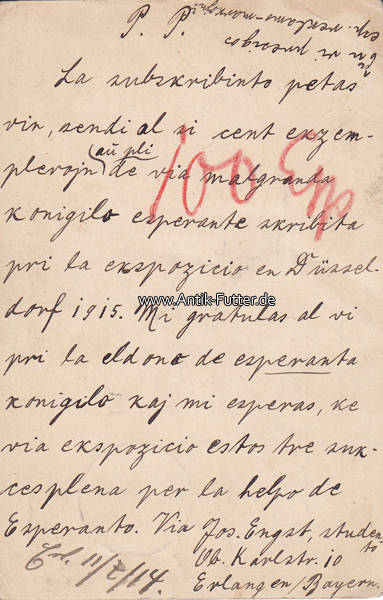 P. P.
La subskribinto petas
vin, sendi al si cent ekzem-
plerojn (aŭ pli) de via malgranda
konigilo esperante skribita
pri la ekspozicio en Düssel-
dorf 1915. Mi gratulas al vi
pri la eldono de esperanta
konigilo kaj mi esperas, ke
via ekspozicio estos tre suk-
cesplena per la helpo de
Esperanto. Via Jos. Engst, studento
Ob. Karlstr. 10
Erlangen/Bayern.
Erl. 11/2/14.
100 Exp
www.Antik-Futter.de